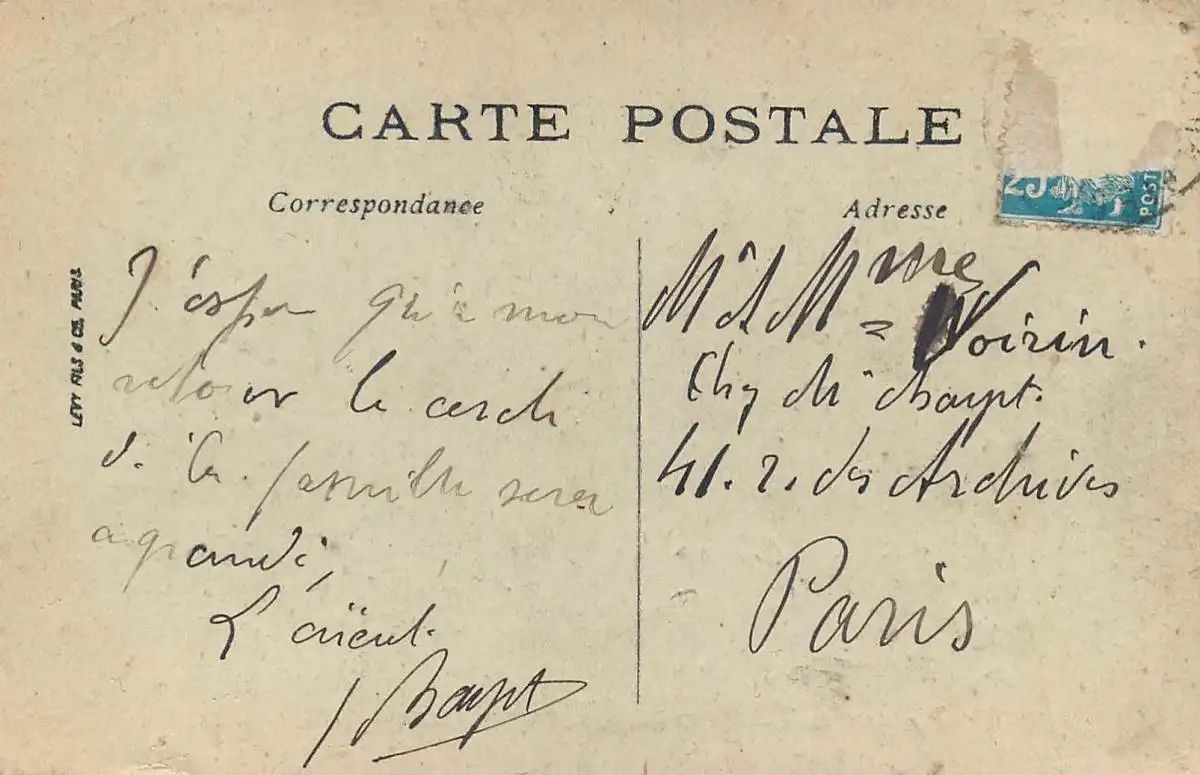 CARTE POSTALE
Correspondance
Adresse
25
POST
LEVY FILS & CIE, PARIS
J'espère qu'à mon
retour le cercle
de la famille sera
agrandi,
L'aïeul.
Mr & Mme
Voirin.
Chez Mr
41. r. des Archives
Paris